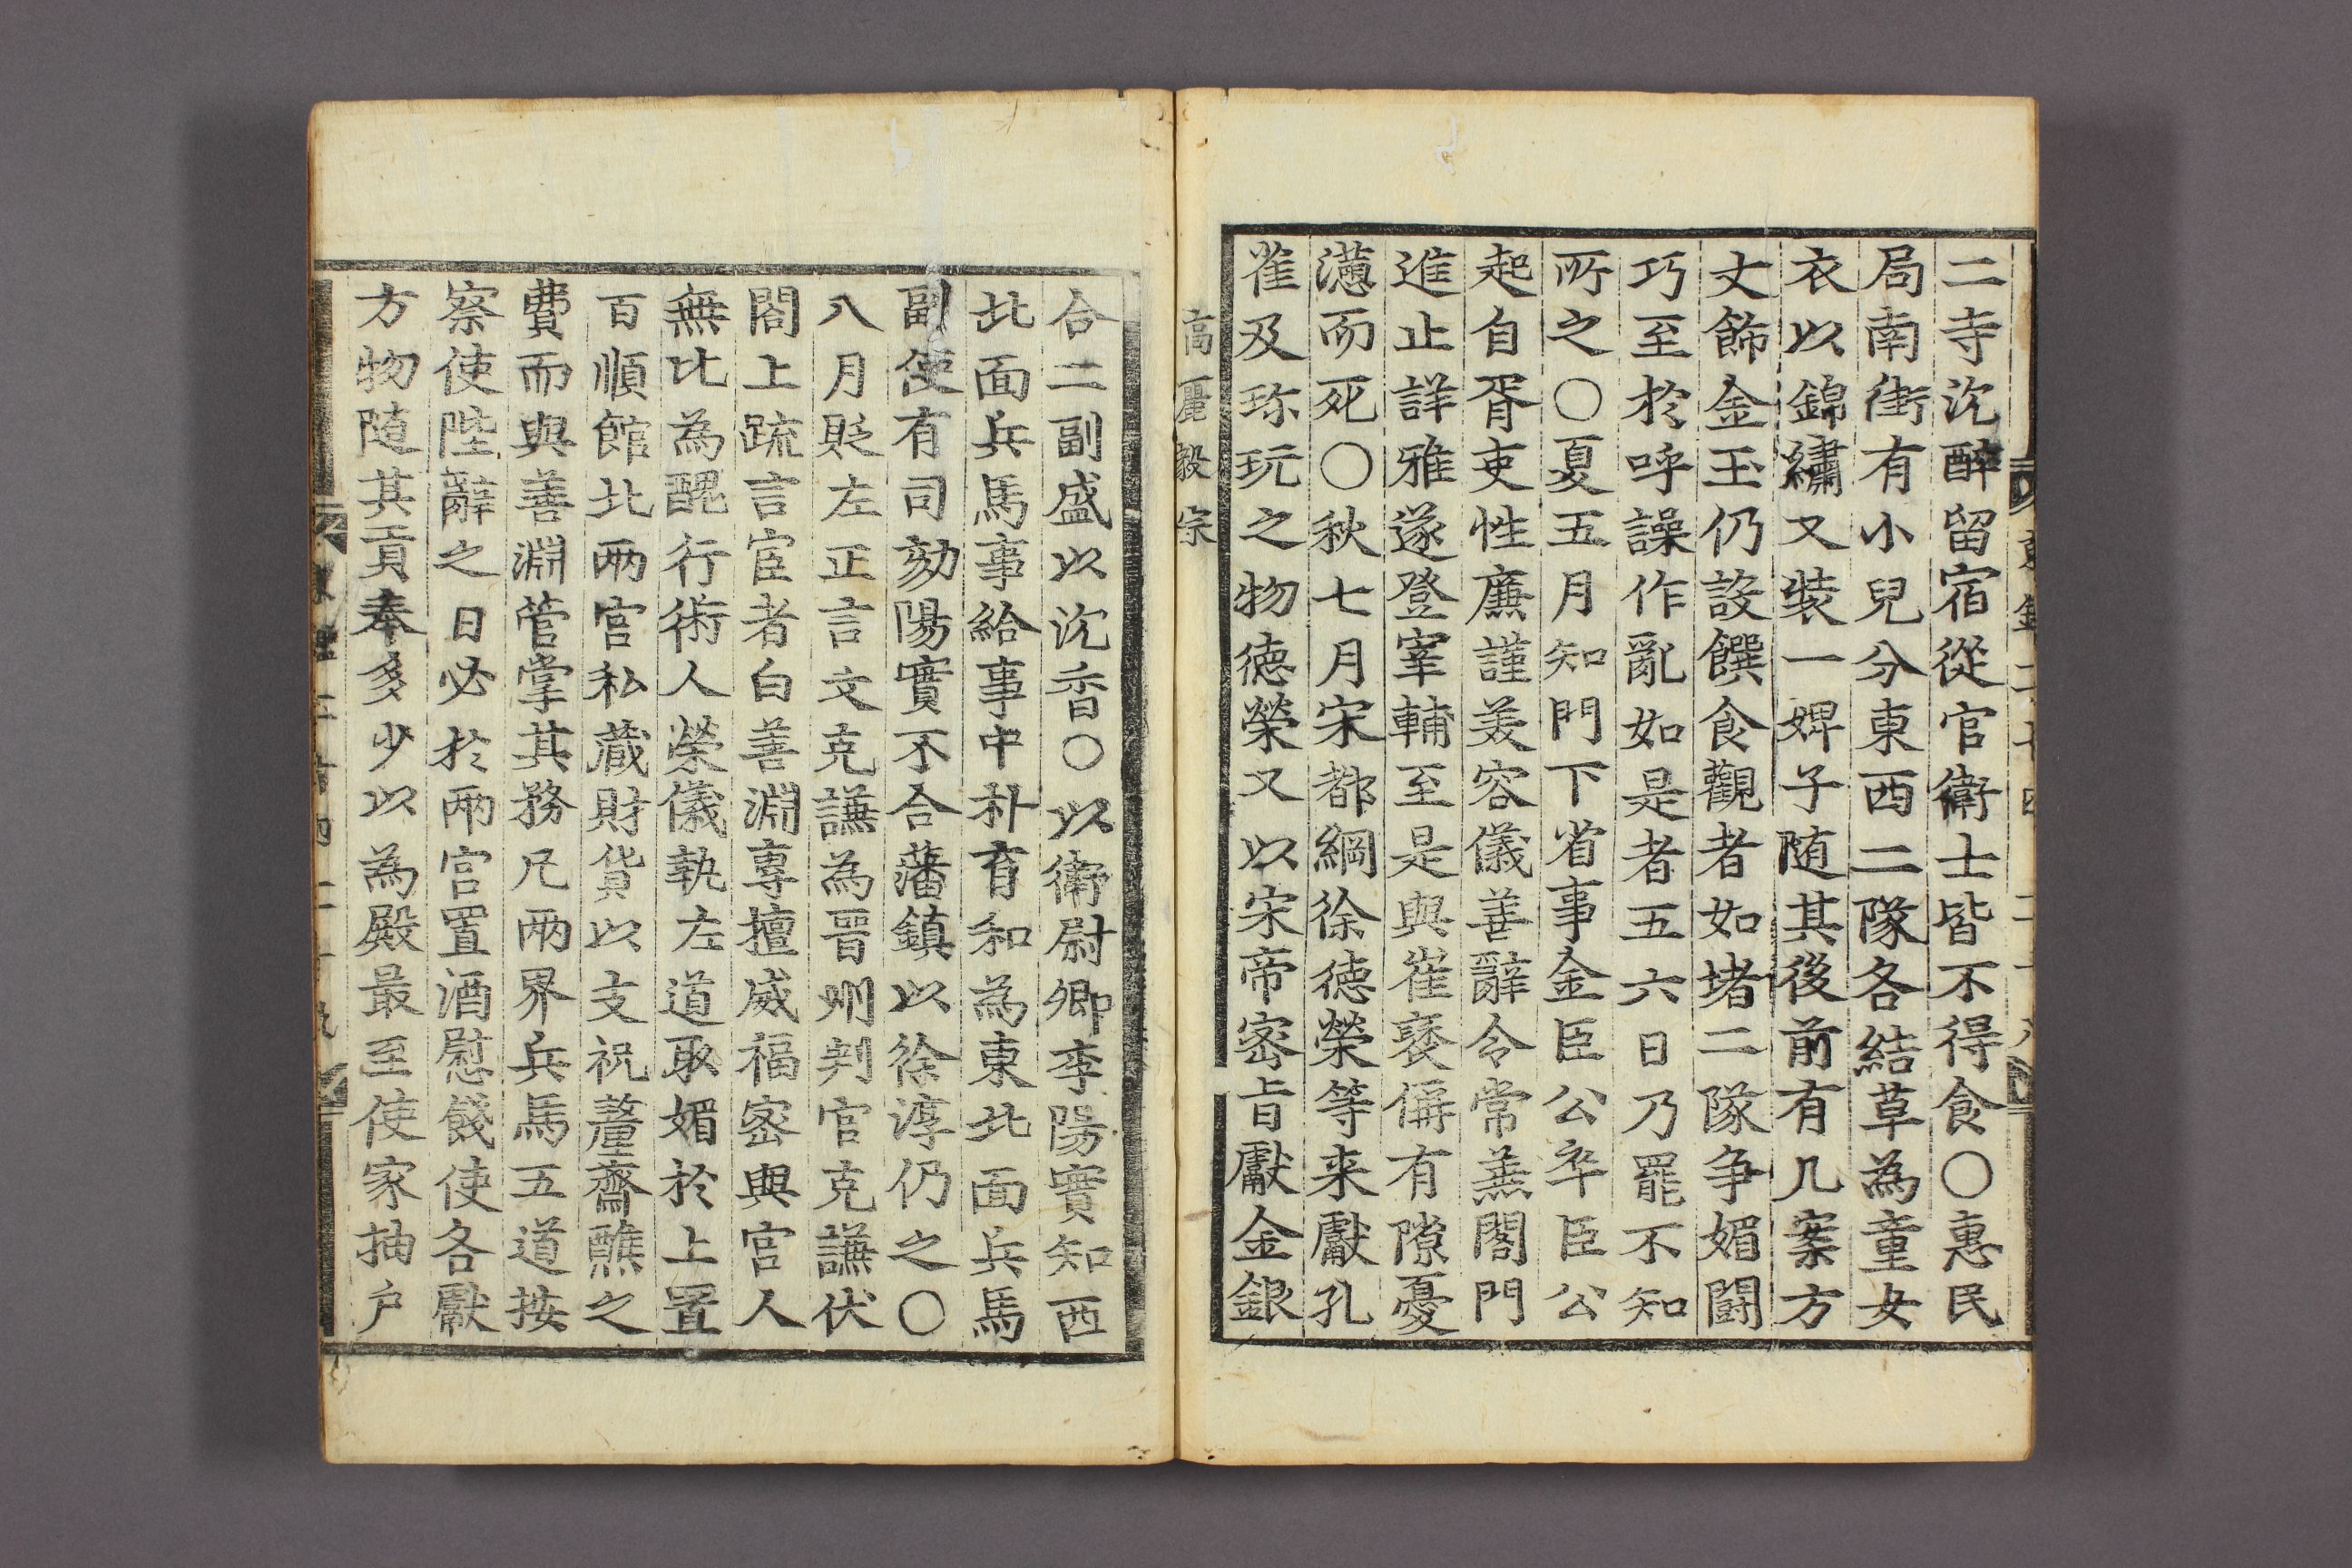 二寺沈醉留宿從官衛士皆不得食○惠民
局南街有小兒分東西二隊各結草為童女
衣以錦繡又裝一婢子随其後前有几案方
丈飾金玉仍設饌食觀者如堵二隊争媚闘
巧至於呼譟作亂如是者五六日乃罷不知
所之○夏五月知門下省事金臣公卒臣公
起自胥吏性廉謹美容儀善辭令常為閤門
進止詳雅遂登宰輔至是與崔褎偁有隙憂
懣而死○秋七月宋都綱徐德榮等来獻孔
雀及珎玩之物德榮又以宋帝密旨獻金銀
高麗毅宗
合二副盛以沈香○以衛尉卿李陽實知西
北面兵馬事給事中朴育和為東北面兵馬
副使有司劾陽實不合藩鎮以徐淳仍之○
八月貶左正言文克謙為晋州判官克謙伏
閤上疏言宦者白善淵專擅威福密與宮人
無比為醜行術人榮儀執左道取媚於上置
百順館北兩宮私藏財貨以支祝釐齋醮之
費而與善淵管掌其務凡兩界兵馬五道按
察使陛辭之日必於兩宮置酒慰餞使各獻
方物随其貢奉多少以為殿最至使家抽户